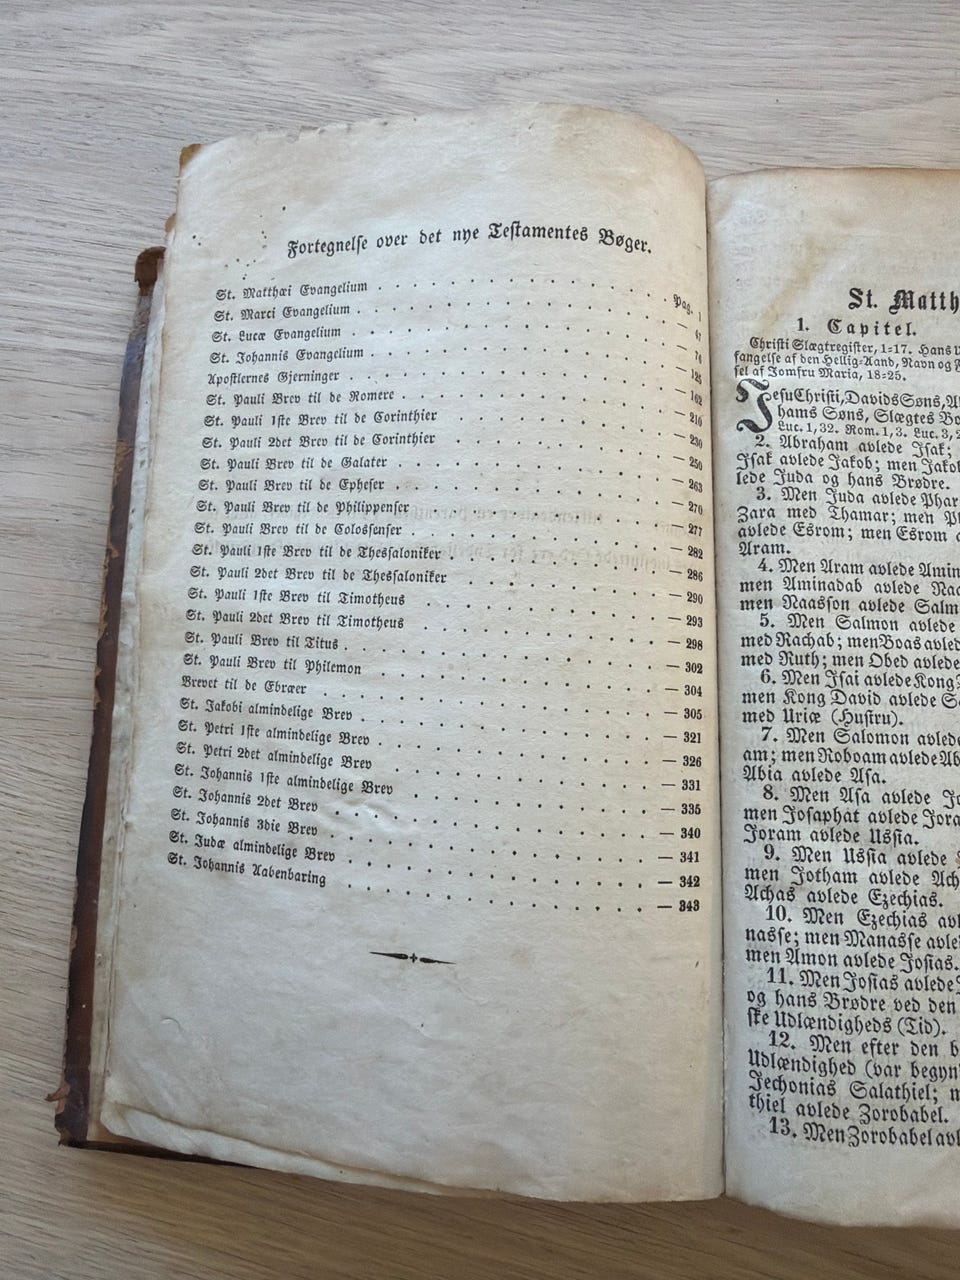 Fortegnelse over det nye Testamentes Bøger.
St. Matthæi Evangelium . . . Pag. 1
St. Marci Evangelium . . . — 47
St. Lucæ Evangelium . . . — 76
St. Johannis Evangelium . . . — 125
Apostlernes Gjerninger . . . — 162
St. Pauli Brev til de Romere . . . — 210
St. Pauli 1ste Brev til de Corinthier . . . — 230
St. Pauli 2det Brev til de Corinthier . . . — 250
St. Pauli Brev til de Galater . . . — 263
St. Pauli Brev til de Epheser . . . — 270
St. Pauli Brev til de Philippenser . . . — 277
St. Pauli Brev til de Colossenser . . . — 282
St. Pauli 1ste Brev til de Thessaloniker . . . — 286
St. Pauli 2det Brev til de Thessaloniker . . . — 290
St. Pauli 1ste Brev til Timotheus . . . — 293
St. Pauli 2det Brev til Timotheus . . . — 298
St. Pauli Brev til Titus . . . — 302
St. Pauli Brev til Philemon . . . — 304
Brevet til de Ebræer . . . — 305
St. Jakobi almindelige Brev . . . — 321
St. Petri 1ste almindelige Brev . . . — 326
St. Petri 2det almindelige Brev . . . — 331
St. Johannis 1ste almindelige Brev . . . — 335
St. Johannis 2det Brev . . . — 340
St. Johannis 3die Brev . . . — 341
St. Judæ almindelige Brev . . . — 342
St. Johannis Aabenbaring . . . — 343
St. Matth
1. Capitel.
Christi Slægtregister, 1-17. Hans
fangelse af den Hellig-Aand, Navn og
sel af Jomfru Maria, 18-25.
Jesu Christi, Davids Søns,
hams Søns, Slægtes
Luc. 1, 32. Rom. 1, 3. Luc. 3,
2. Abraham avlede Isak;
Isak avlede Jakob; men Jakob
lede Juda og hans Brødre.
3. Men Juda avlede Phar
Zara med Thamar; men
avlede Esrom; men Esrom
Aram.
4. Men Aram avlede Amin
men Aminadab avlede
men Naasson avlede Salm
5. Men Salmon avlede
med Rachab; men Boas avled
med Ruth; men Obed avlede
6. Men Isai avlede Kong
men Kong David avlede
med Uriæ (Hustru).
7. Men Salomon avlede
am; men Roboam avlede Ab
Abia avlede Asa.
8. Men Asa avlede
men Josaphat avlede Jora
Joram avlede Ussia.
9. Men Ussia avlede
men Jotham avlede Ach
Achas avlede Ezechias.
10. Men Ezechias avl
nasse; men Manasse avle
men Amon avlede Josias.
11. Men Josias avlede
og hans Brødre ved den
ske Udlændigheds (Tid).
12. Men efter den b
Udlændighed (var begyn
Jechonias Salathiel; m
thiel avlede Zorobabel.
13. Men Zorobabel avl